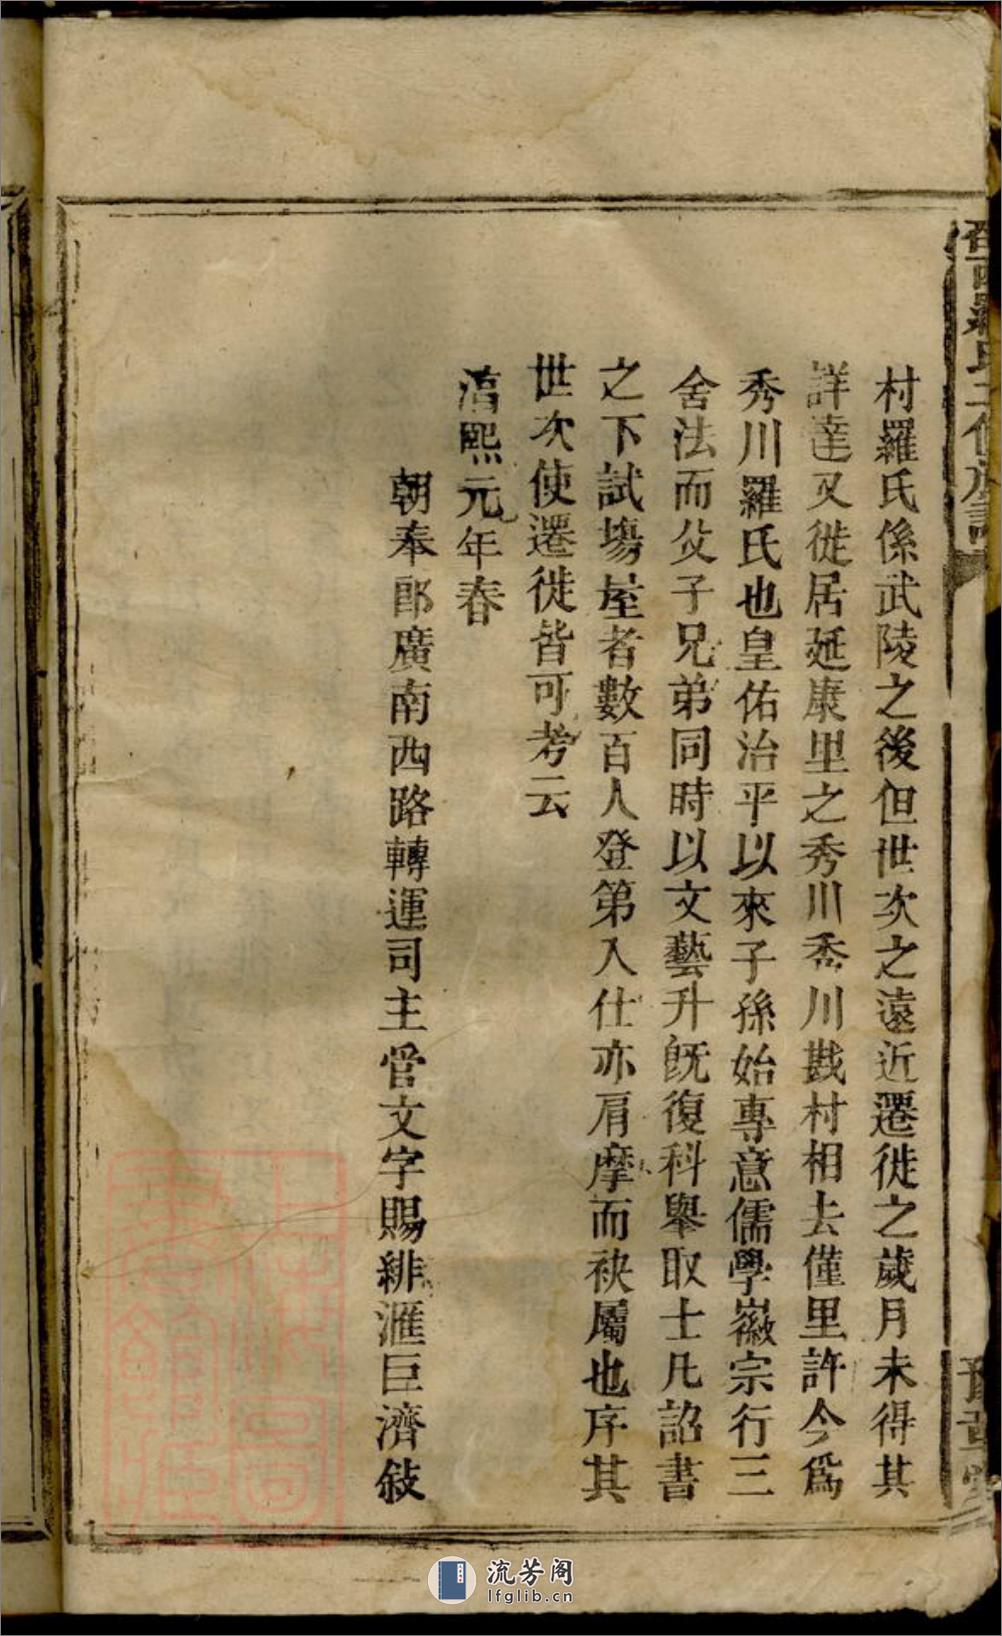 村羅氏係武陵之後但世次之遠近遷徙之歲月未得其
詳達又徙居延康里之秀川秀川戡村相去僅里許今爲
秀川羅氏也皇佑治平以來子孫始專意儒學徽宗行三
舍法而父子兄弟同時以文藝升旣復科舉取士凡詔書
之下試塲屋者數百人登第入仕亦肩摩而袂屬也序其
世次使遷徙皆可考云
淳熙元年春
朝奉郎廣南西路轉運司主管文字賜緋滙巨濟敍
羅氏
豫章堂
流芳阁
lfglib.cn